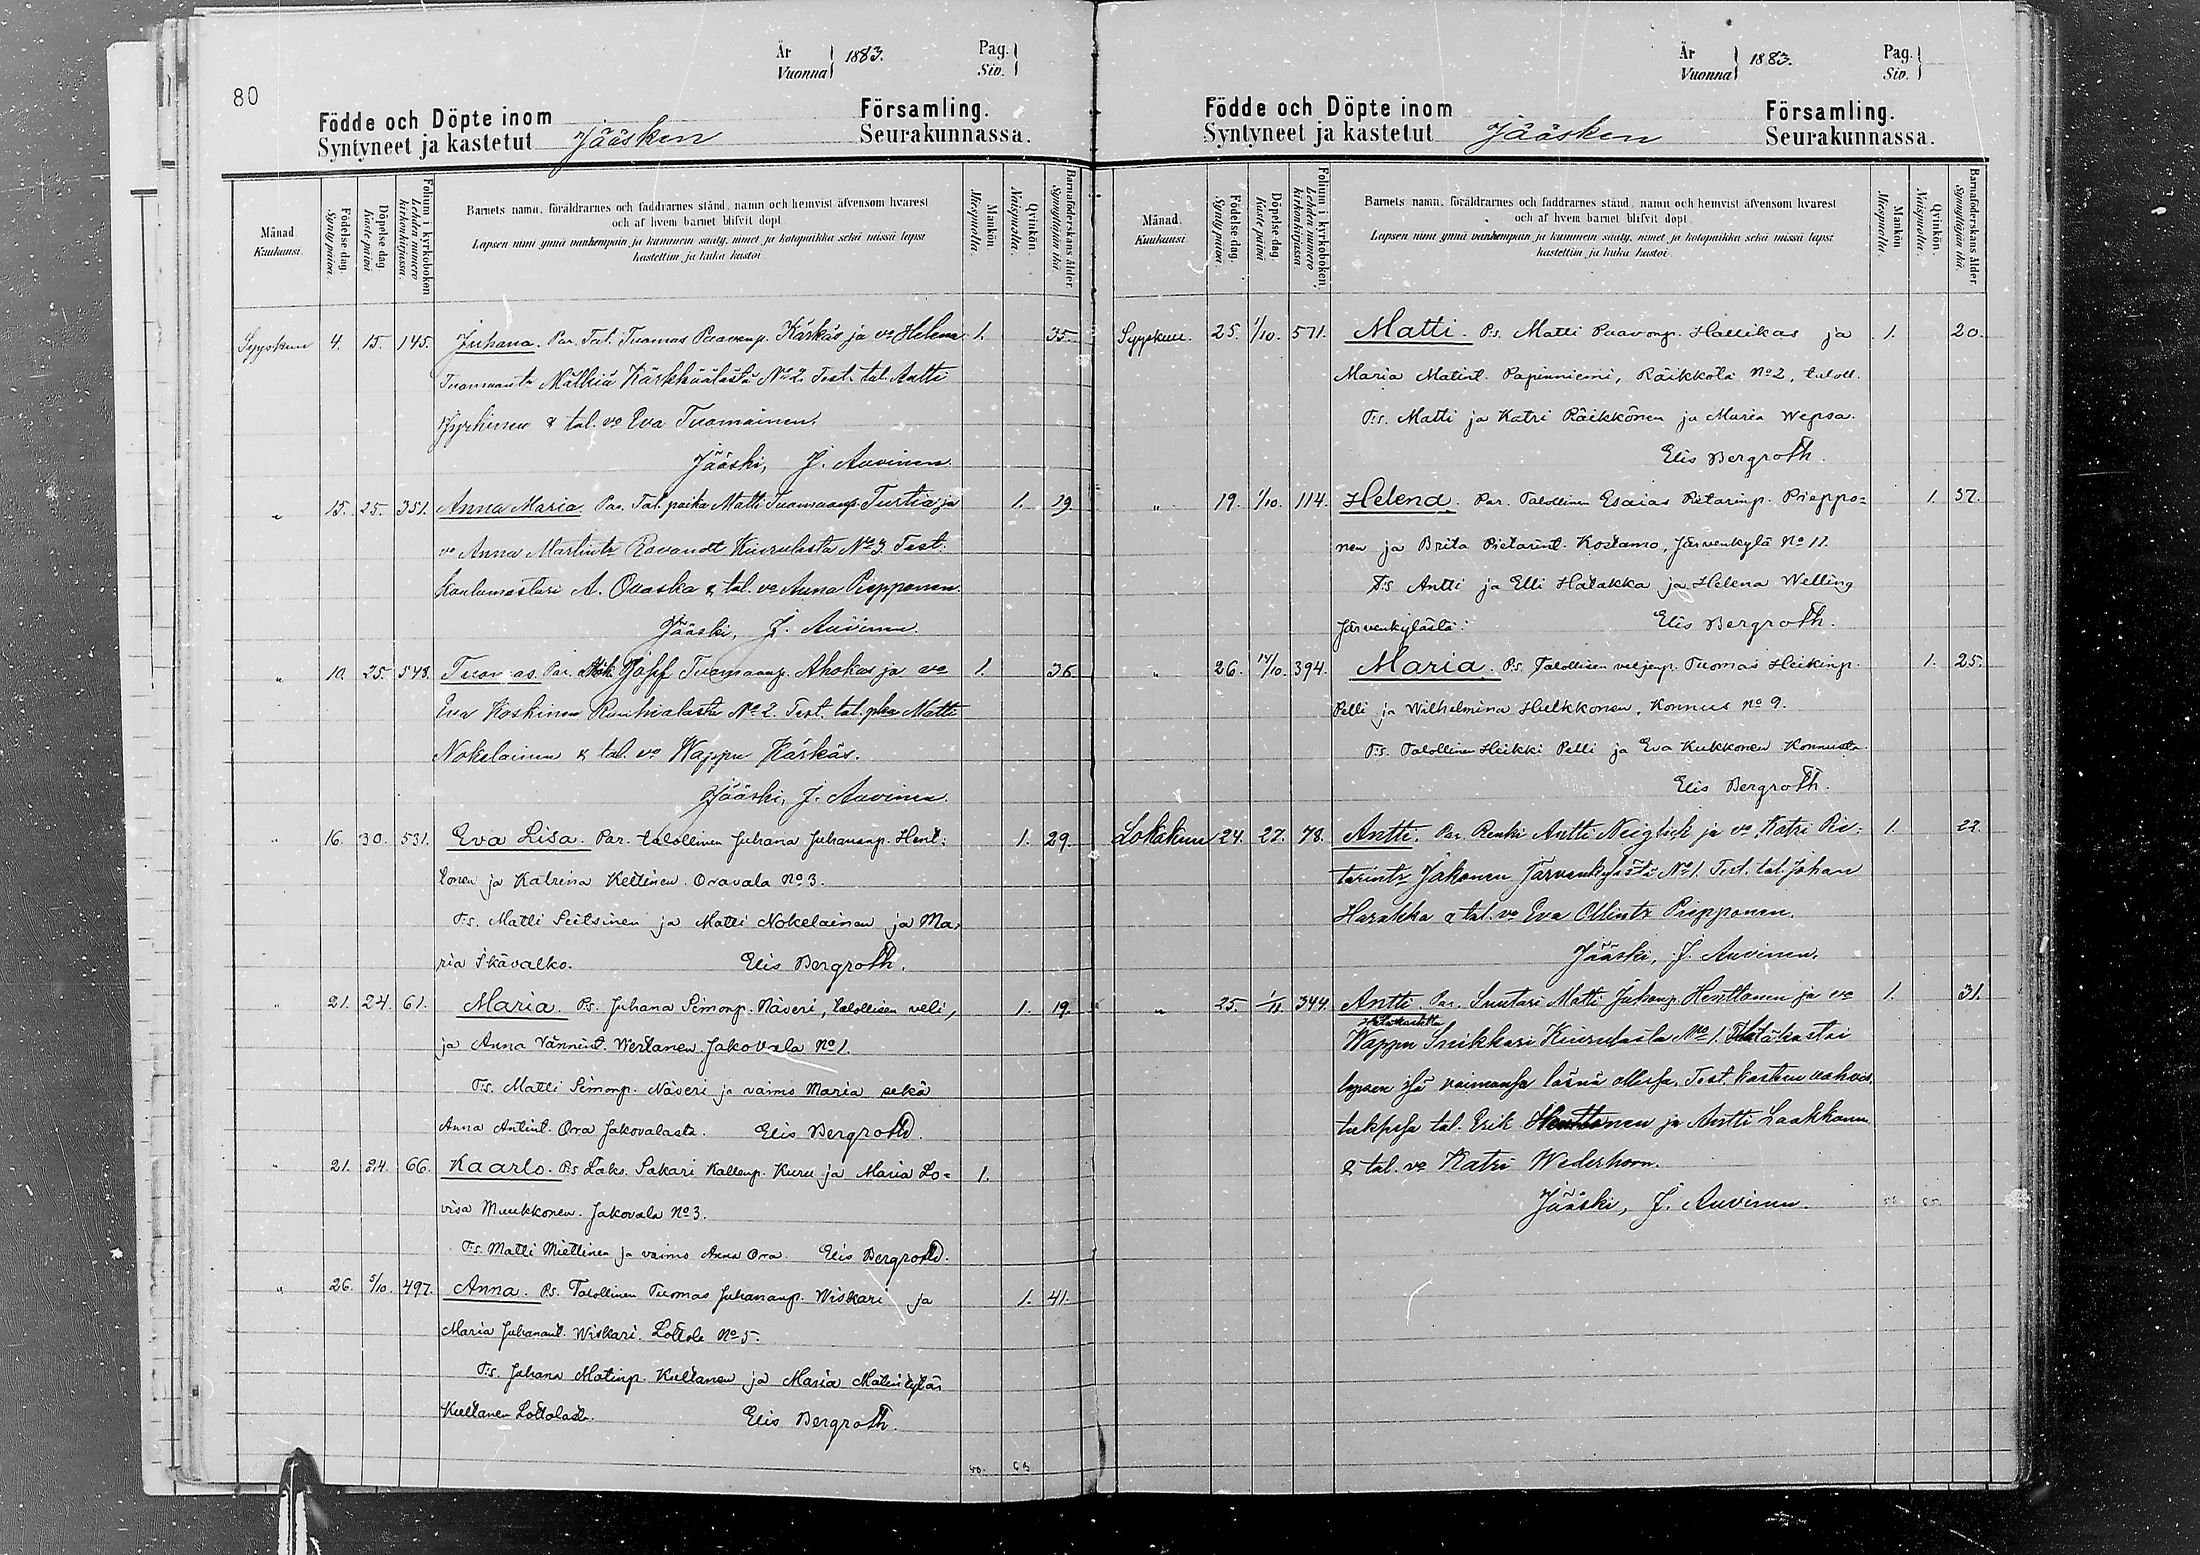 80
År
Vuonna 1883.
Pag.
Siv.
Födde och Döpte inom
Syntyneet ja kastetut Jääsken
Församling.
Seurakunnassa.
Månad. Kuukausi.
Födelse dag. Synty päivä.
Döpelse dag Kaste päivä.
Folium i kyrkoboken Lehden numero kirkonkirjassa.
Barnets namn, föräldrarnes och faddrarnes stånd, namn och hemvist äfvensom hvarest
och af hvem barnet blifvit döpt.
Lapsen nimi ynnä vanhempain ja kummein sääty, nimet ja kotopaikka sekä missä lapsi
kastettiin ja kuka kastoi.
Mankön. Miespuolia.
Qvinkön. Naispuolia.
Barnaföderskans ålder. Synnyttäjän ikä.
Syyskuu 4. 15. 145. Juhana. Par. Tal. Tuomas Paavonp. Kärkäs ja vo Helena 1. 35.
Tuomaantr Mälkiä Kärkkäälästä No 2. Test. tal. Antti
Kyrhinen & tal. vo Eva Tuomainen.
Jääski, J. Auvinen.
" 15. 25. 351. Anna Maria. Par. Tal. poika Matti Tuomaanp. Turtia ja 1. 29
vo Anna Martintr Ravandt Kiurulasta No 3. Test.
koulumestari A. Ovaska & tal. vo Anna Piepponen.
Jääski, J. Auvinen.
" 10. 25. 548. Tuomas. Par. Mök. Josef Tuomaanp. Ahokas ja vo 1. 36
Eva Koskinen Rauhialasta No 2. Test. tal. pka Matti
Nokelainen & tal. vo Wappu Kärkäs.
Jääski, J. Auvinen.
" 16. 30. 531. Eva Lisa. Par. talollinen Juhana Juhananp. Hent- 1. 29.
tonen ja Katrina Keltinen. Oravala No 3.
T:s. Matti Seitsinen ja Matti Nokelainen ja Ma-
ria Ikävalko. Elis Bergroth.
" 21. 24 61. Maria. P:s. Juhana Simonp. Näveri, talollisen veli, 1. 19.
ja Anna Vännint. Wertanen. Jakovala No 1.
T:s. Matti Simonp. Näveri ja vaimo Maria sekä
Anna Antint. Ora Jakovalasta. Elis Bergroth.
" 21. 24. 66. Kaarlo. P:s Laks. Sakari Kallenp. Kuru ja Maria Lo- 1.
visa Muukkonen. Jakovala No 3.
T:s. Matti Miettinen ja vaimo Anna Ora. Elis Bergroth.
" 26. 5/10. 497. Anna. P:s. Talollinen Tuomas Juhananp. Wiskari ja 1. 41.
Maria Juhanant. Wiskari. Lottola No 5.
T:s. Juhana Matinp. Kultanen ja Maria Matintytär
Kultanen Lottolasta. Elis Bergroth.
År
Vuonna 1883.
Pag.
Siv.
Födde och Döpte inom
Syntyneet ja kastetut Jääsken
Församling.
Seurakunnassa.
Månad. Kuukausi.
Födelse dag. Synty päivä.
Döpelse dag. Kaste päivä.
Folium i kyrkoboken, Lehden numero kirkonkirjassa.
Barnets namn, föräldrarnes och faddrarnes stånd, namn och hemvist äfvensom hvarest
och af hvem barnet blifvit döpt.
Lapsen nimi ynnä vanhempain ja kummein sääty, nimet ja kotopaikka sekä missä lapsi
kastettiin ja kuka kastoi.
Mankön. Miespuolia.
Qvinkön. Naispuolia.
Barnaföderskans ålder. Synnyttäjän ikä.
Syyskuu. 25. 1/10. 571. Matti. P:s. Matti Paavonp. Hallikas ja 1. 20.
Maria Matint. Papinniemi, Räikkölä No 2, taloll.
T:s. Matti ja Katri Räikkönen ja Maria Wepsa.
Elis Bergroth.
" 19. 1/10. 114. Helena. Par. Talollinen Esaias Pietarinp. Pieppo- 1. 37.
nen ja Brita Pietarint. Kostamo, Järvenkylä No 11.
T:s Antti ja Elli Halakka ja Helena Welling
Järvenkylästä. Elis Bergroth.
" 26. 14/10. 394. Maria. P:s. Talollisen veljenp. Tuomas Heikinp. 1. 25.
Pelli ja Wilhelmina Hulkkonen, Konnus No 9.
T:s. Talollinen Heikki Pelli ja Eva Kukkonen Konnusta.
Elis Bergroth.
Lokakuu 24. 27. 78. Antti. Par. Renki Antti Neiglick ja vo Katri Pie- 1. 22.
tarintr Jakonen Järvenkylästä No 1. Test. tal. Johan
Harakka & tal. vo Eva Ollintr Piepponen.
Jääski, J. Auvinen.
" 25. 344. Antti. Par. Suutari Matti Jakonp. Henttonen ja vo 1. 31.
Hätäkastettu
Wappu Snikkari Kiurulasta No 1. Hätäkastoi
lapsen isä vaimonsa läsnä ollessa. Test. kasteen vahvis-
tuksessa tal. Erik Henttonen ja Antti Laakkonen
& tal. vo Katri Wederhorn.
Jääski, J. Auvinen.